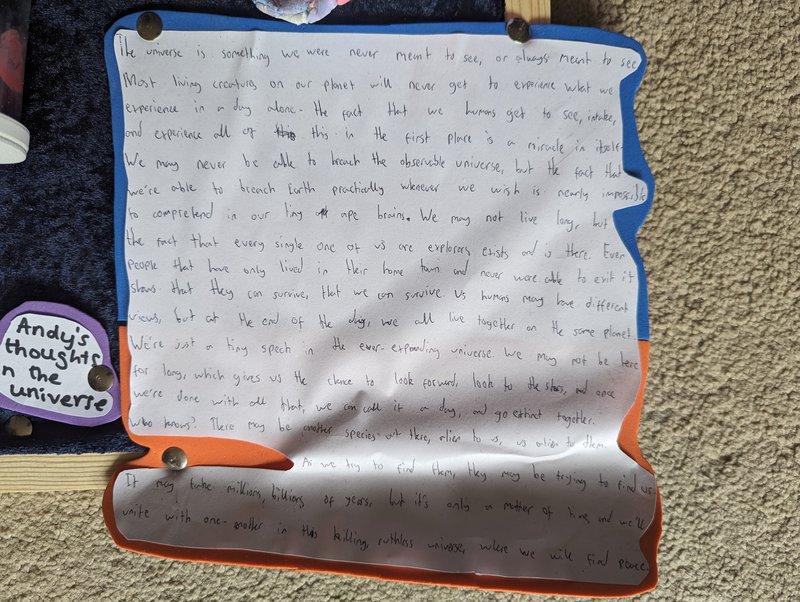 The universe is something we were never meant to see, or always meant to see
Most living creatures on our planet will never get to experience what we
experience in a day alone. The fact that we humans get to see, intake,
and experience all of this in the first place is a miracle in itself.
We may never be able to breach the observable universe, but the fact that
we're able to breach Earth practically whenever we wish is nearly impossible
to comprehend in our tiny ape brains. We may not live long, but
the fact that every single one of us are explorers exists and is there. Even
people that have only lived in their home town and never were able to exit it
shows that they can survive, that we can survive. Us humans may have different
views, but at the end of the day, we all live together on the same planet.
We're just a tiny speck in the ever-expanding universe. We may not be here
for long, which gives us the chance to look forward, look to the stars, and once
we're done with all that, we can call it a day, and go extinct together.
Who knows? There may be another species out there, alien to us, us alien to them.
As we try to find them, they may be trying to find us.
It may take millions, billions of years, but it's only a matter of time, and we'll
unite with one-another in this killing, ruthless universe, where we will find peace.
Andy's
thoughts
n the
universe